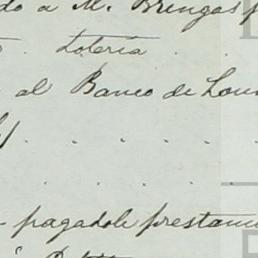 do a M. Bringas p
Lotería
al Banco de Lon
pagadole prestam